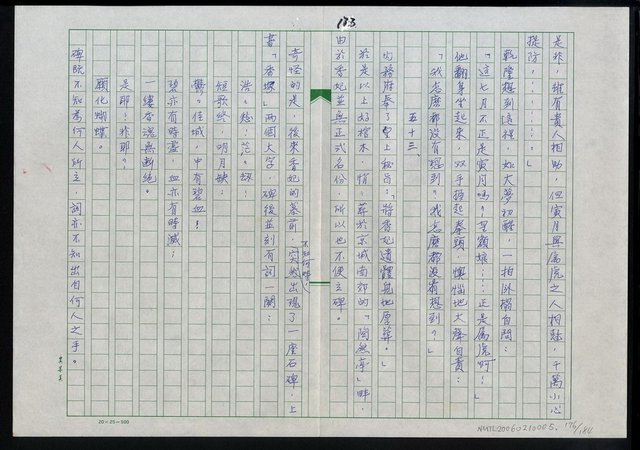 183
是非，雖有貴人相助，但寅月與屬虎之人相尅，千萬小心
提防………」
乾隆想到這裡，如大夢初醒，一拍臥榻自問：
「這七月不正是寅月嗎？皇額娘……正是屬虎啊！」
他翻身坐起來，双手握起拳頭，懊惱地大聲自責：
「我怎麼都沒有想到？我怎麼都沒有想到？」
五十三、
內務府奉了皇上秘旨：「將香妃遺體就地厚葬。」
於是以上好棺木，悄悄葬於京城南郊的「陶然亭」畔，
由於香妃並無正式名份，所以也不便立碑。
奇怪的是，後來香妃的墓前，不知何時，突然出現了一座石碑，上
書「香塚」兩個大字，碑後並刻有詞一闋：
浩浩愁！茫茫劫！
短歌終，明月缺。
鬱鬱佳城，中有碧血！
碧亦有時盡，血亦有時滅；
一縷香魂無斷絕。
是耶！非耶？
願化蝴蝶。
碑既不知為何人所立，詞亦不知出自何人之手。
20×25=500
NMTL20060210005
176/184